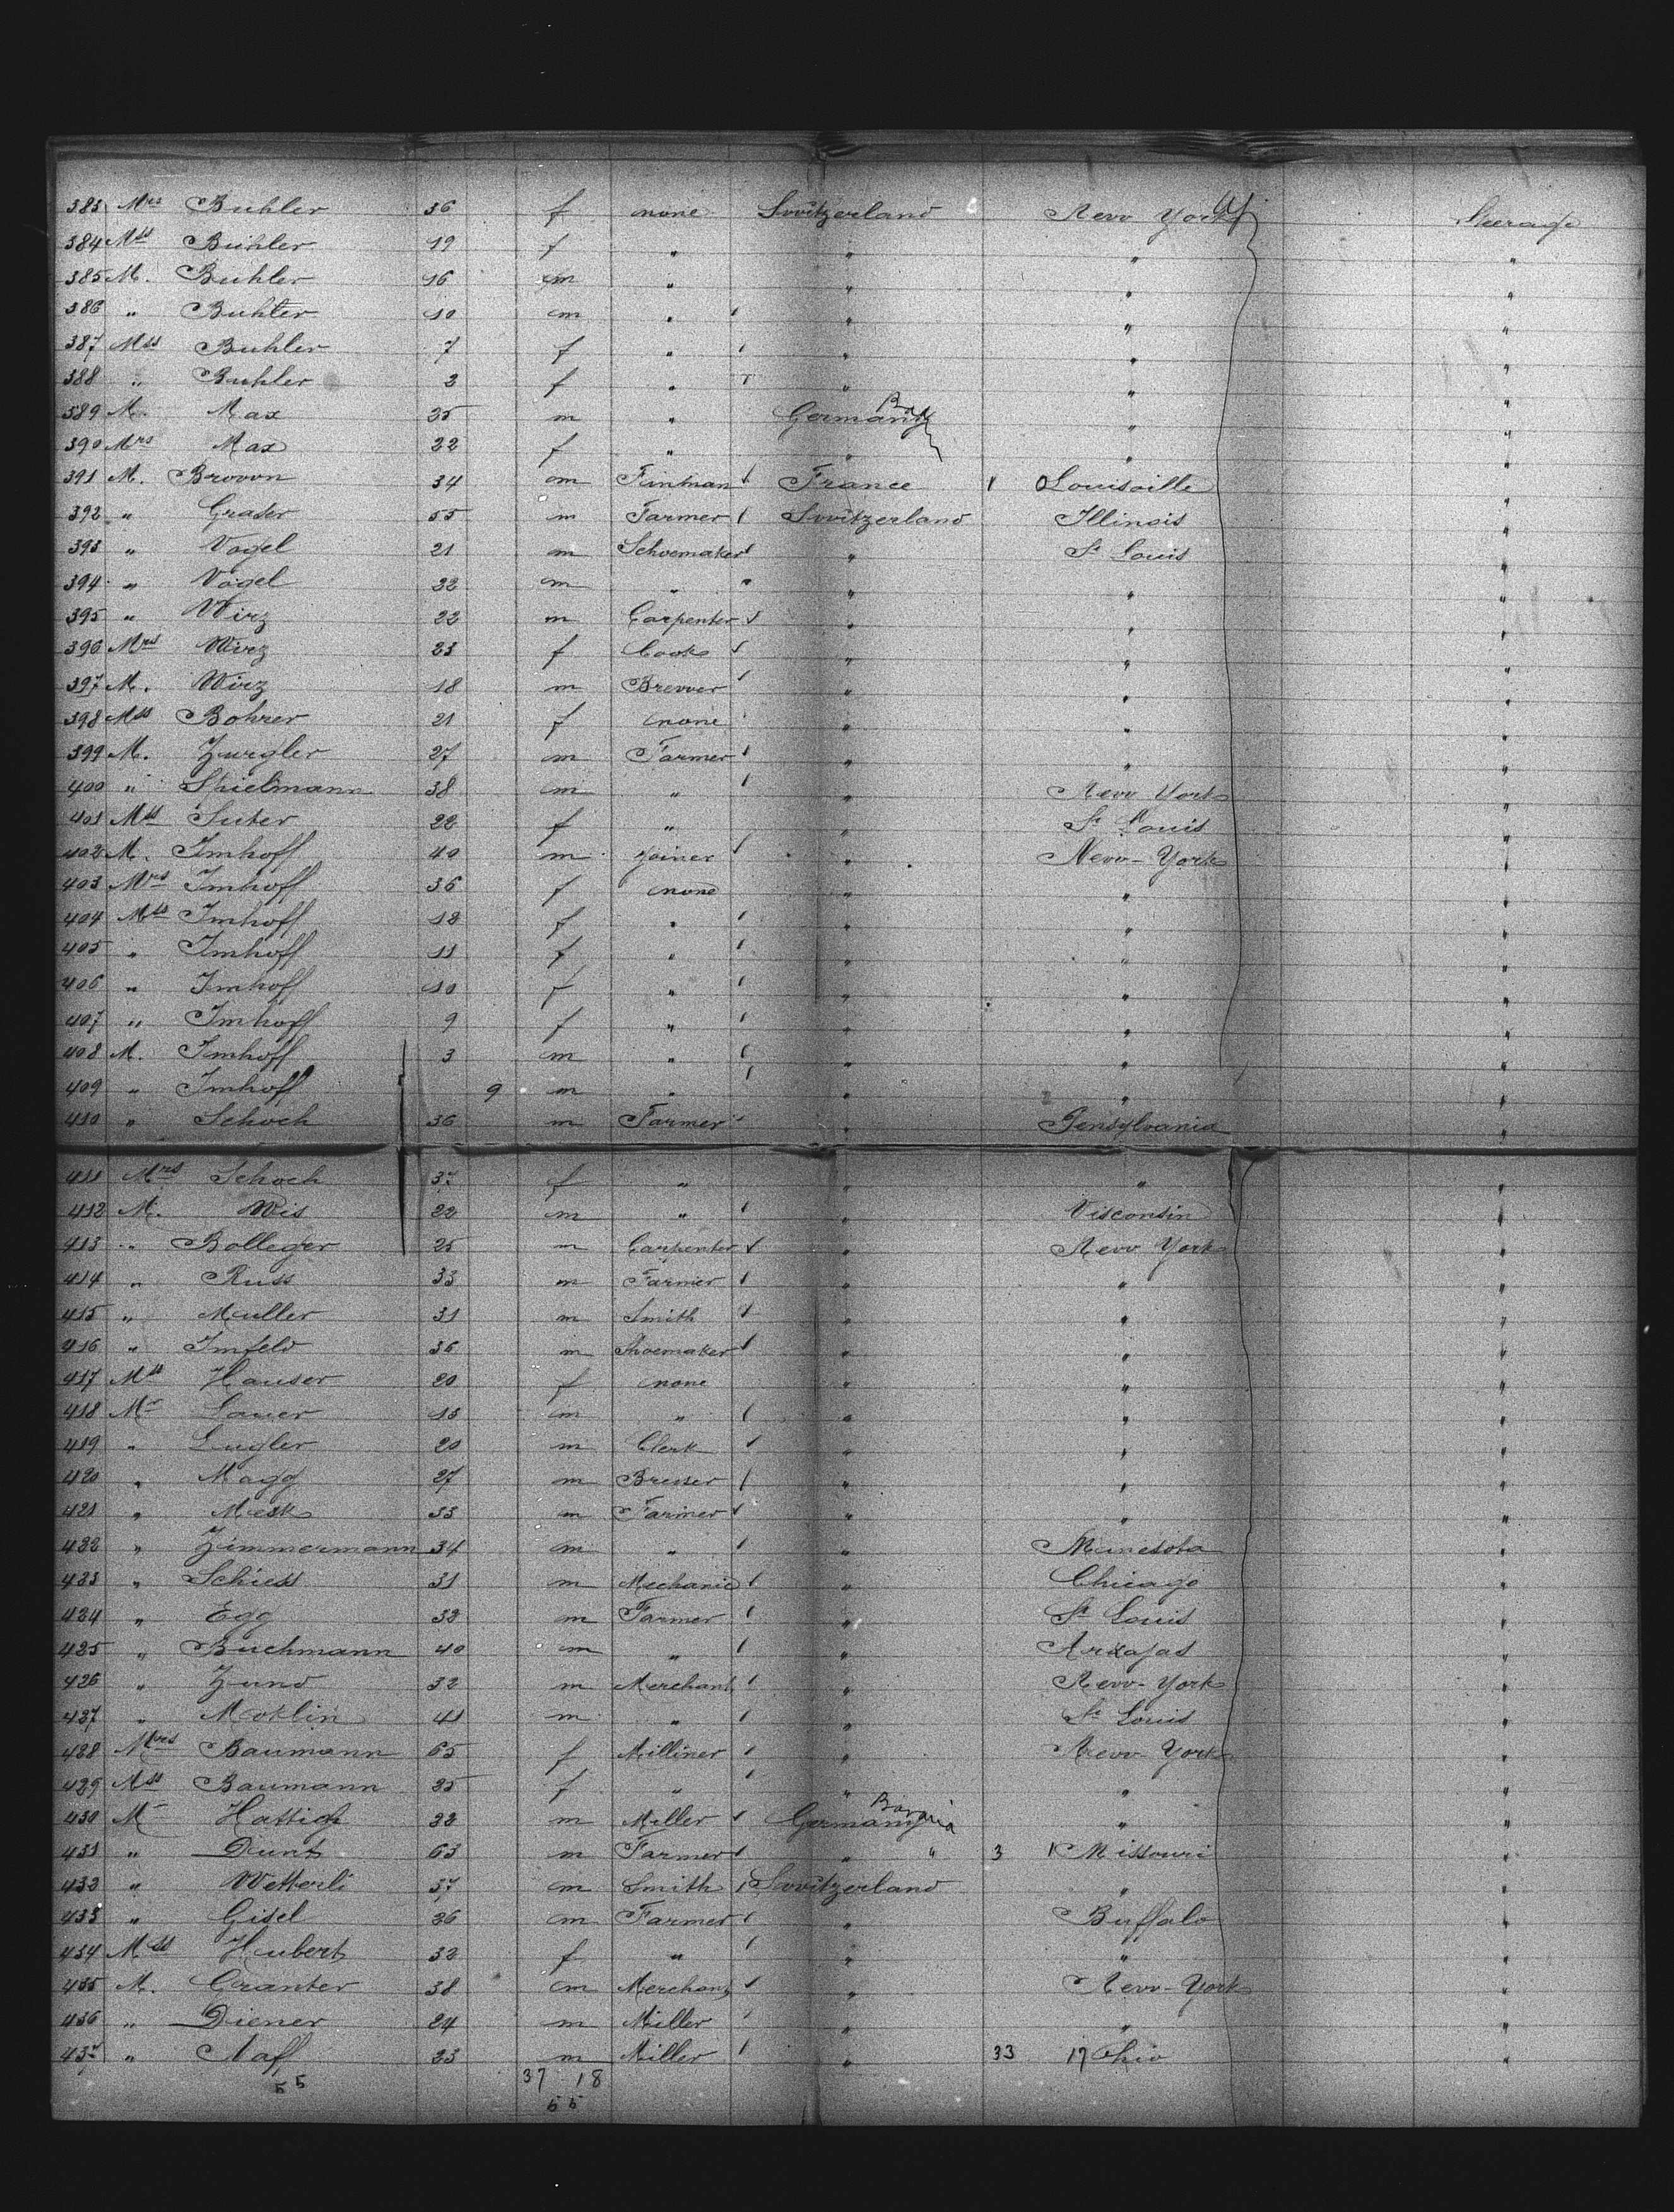 383 Mrs Buhler 36 f none Switzerland New York Steerage
384 Mss Buhler 19 f " " " "
385 M. Buhler 16 m " " " "
386 " Buhler 10 m " " " "
387 Mss Buhler 7 f " " " "
388 " Buhler 3 f " " " "
389 M. Max 25 m " Germany " "
390 Mrs Max 22 f " " " "
391 M. Brown 34 m France 1 Louisville "
392 " Grader 55 m Farmer Switzerland Illinois "
393 " Vogel 21 m Schoemaker " St Louis "
394 " Vogel 22 m " " " "
395 " Wirz 22 m Carpenter " " "
396 Mrs Wirz 23 f Cook " " "
397 M. Wirz 18 m Brewer " " "
398 Mss Bohrer 21 f none " " "
399 M. Zurgler 27 m Farmer " " "
400 " Spielmann 38 m " " New York "
401 Mss Suter 22 f " " St Louis "
402 M. Imhoff 40 m Joiner " New-York "
403 Mrs Imhoff 36 f none " " "
404 Mss Imhoff 12 f " " " "
405 " Imhoff 11 f " " " "
406 " Imhoff 10 f " " " "
407 " Imhoff 9 f " " " "
408 M. Imhoff 3 m " " " "
409 " Imhoff 9 m " " " "
410 " Schoch 36 m Farmer " Pensylvania "
411 Mrs Schoch 37 f " " " "
412 M. Wis 22 m " " Visconsin "
413 " Bolleger 25 m Carpenter " New York "
414 " Russ 33 m Farmer " " "
415 " Muller 31 m Smith " " "
416 " Imfeld 36 m Shoemaker " " "
417 Mss Hauser 20 f none " " "
418 Mr Lauer 15 m " " " "
419 " Lugler 20 m Clerk " " "
420 " Magg 27 m " " "
421 " 33 m Farmer " " "
422 " Zimmermann 34 m " " Minesota "
423 " Schiess 31 m Mechanic " Chicago "
424 " Egg 32 m Farmer " St Louis "
425 " Buchmann 40 m " " "
426 " Zund 32 m Merchant " New-York "
427 " 41 m " " St Louis "
428 Mrs Baumann 65 f Milliner " New York "
429 Mss Baumann 25 f " " " "
430 Mr Hattich 22 m Miller Germany Bavaria " "
431 " Dunt 63 m Farmer " " 3 1 Missouri "
433 " Wetterli 37 m Smith Switzerland " "
433 " Gisel 26 m Farmer " Buffalo "
434 Mss Hubert 32 f " " " "
435 M. Cranter 38 m Merchant " New-York "
436 " Diener 24 m Miller " " "
437 " Naf 23 m Miller " 33 17 Ohio "
55 37 18
55